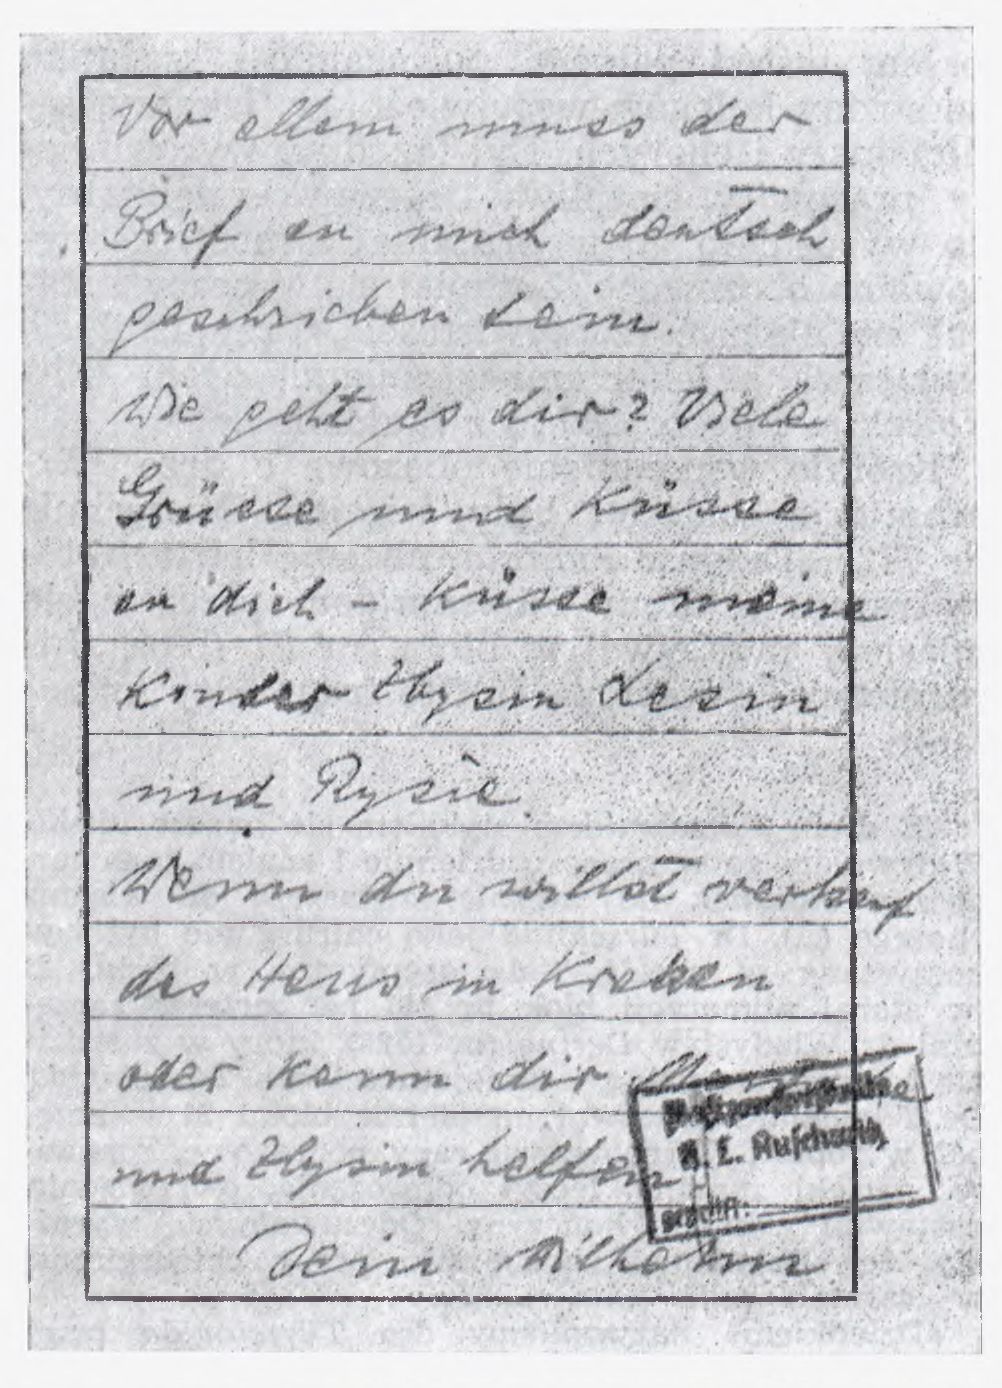 Vor allem muss der
Brief an mich deutsch
geschrieben sein.
Wie geht es dir? Viele
Grüsse und Küsse
an dich - Küsse meine
Kinder Zbysin Lesin
und Rysie.
Wenn du willst verkauf
das Haus in Kraken
oder kann dir
und Zbysin helfen
Dein Wilhelm
K. L. Auschwitz
geprüft: